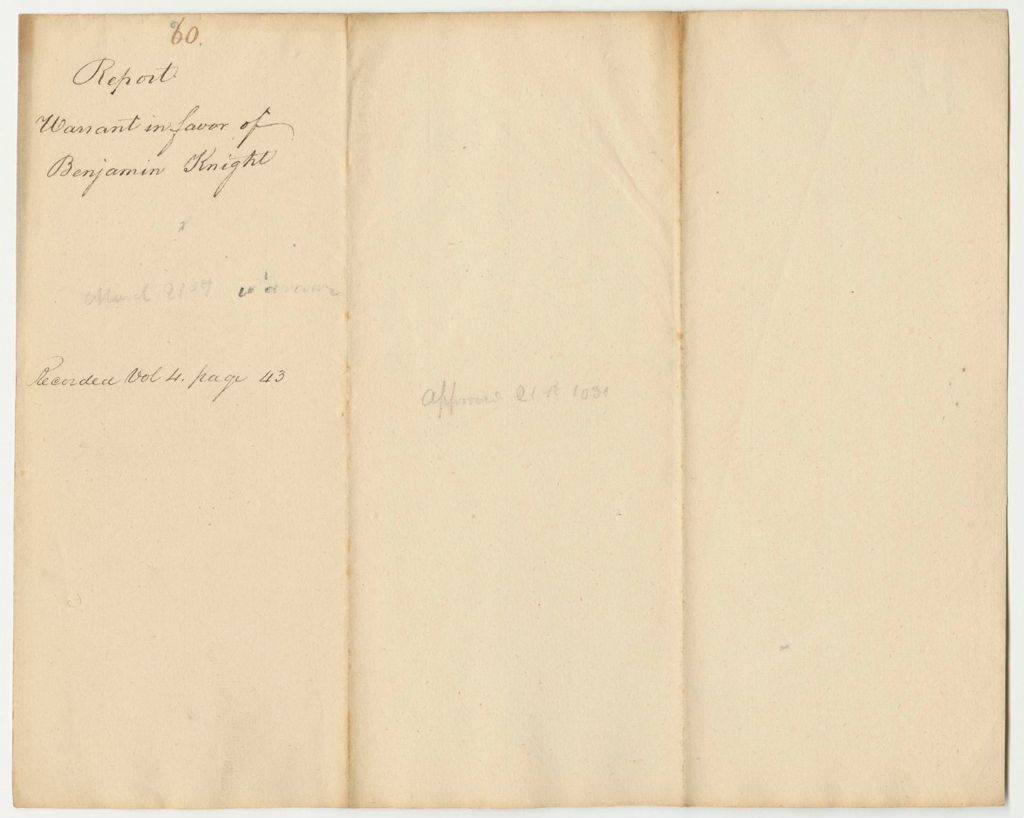 60.
Report
Warrant in favor of
Benjamin Knight
March 21st
Recorded Vol 4. page 43
Approved 21st